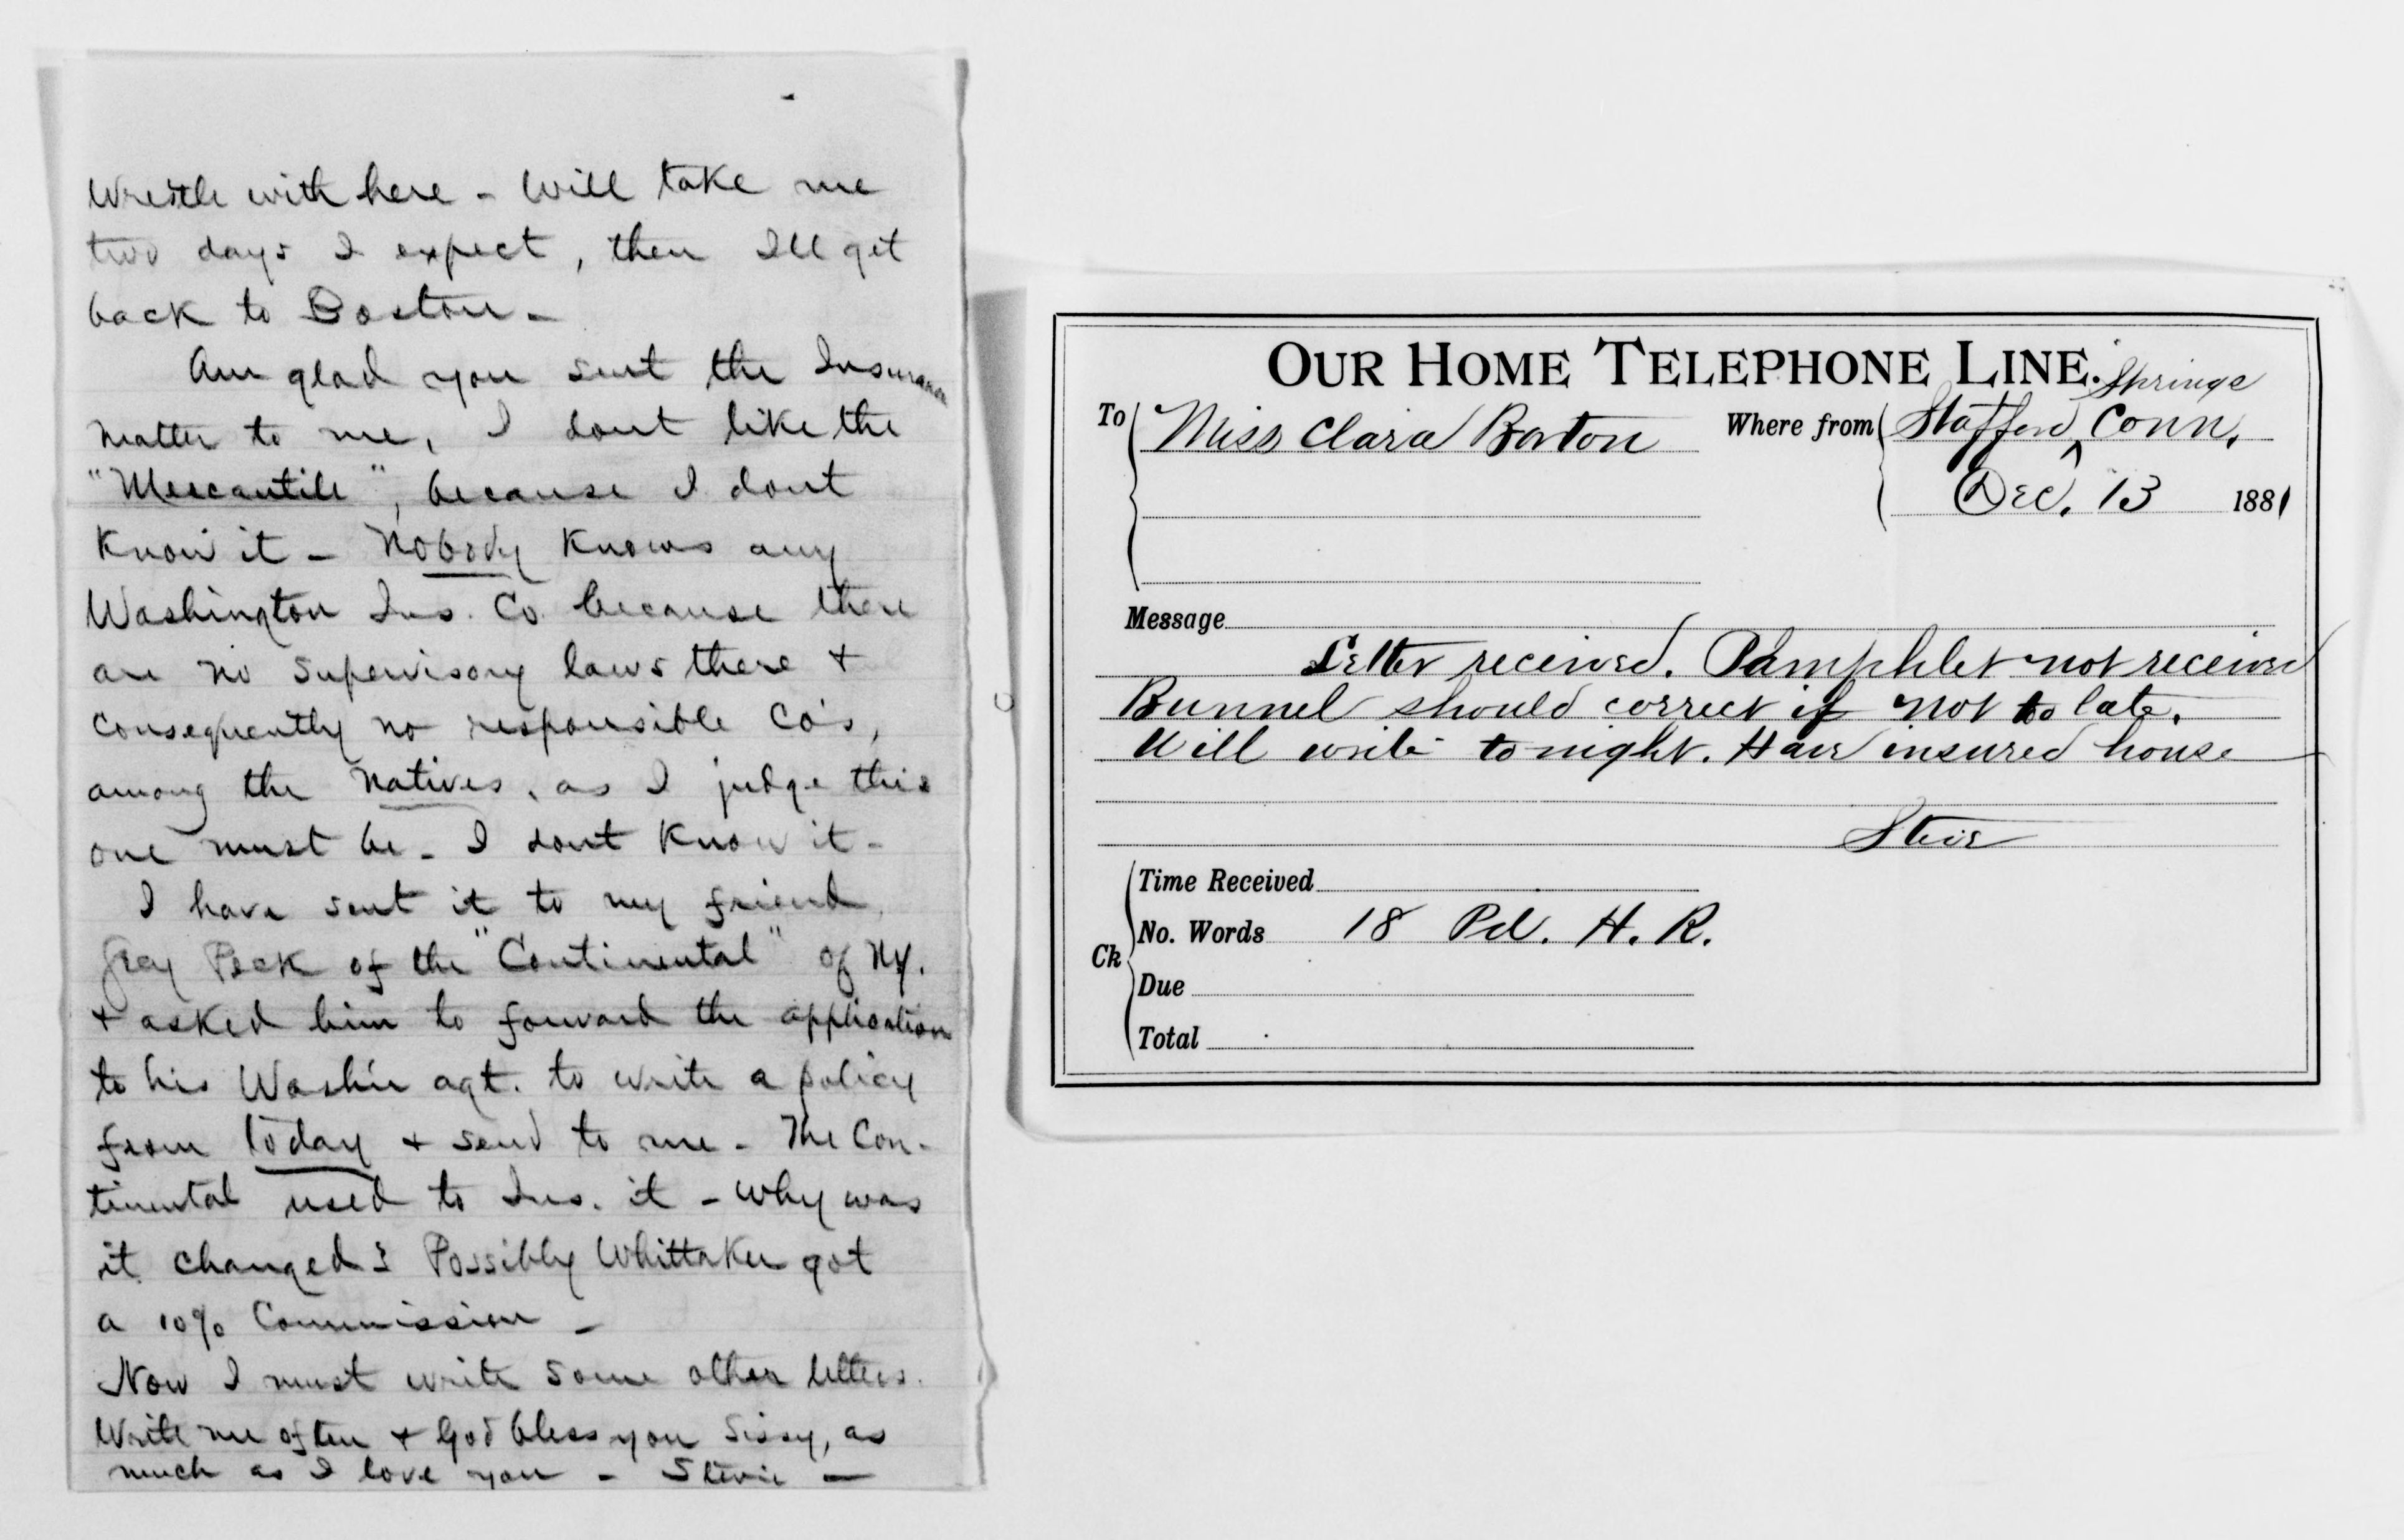 Wrestle with here - Will take me
two days I expect, then Ill get
back to Boston -
Am glad you sent the Insurance
matter to me, I dont like the
"Mercantile", because I dont
Know it - Nobody Knows any
Washington Ins. Co. because there
are no supervisory laws there +
consequently no responsible Co's,
among the natives, as I judge this
one must be - I dont Know it -
I have sent it to my friend
Peck of the "Continental" of NY.
+ asked him to forward the application
to his Wash'n agt. to write a policy
from today + send to me - The Con-
tinental used to Ins. it - Why was
it changed? Possibly Whittaker got
a 10% Commission -
Now I must write some other letters.
Write me often + God bless you Sissy, as
much as I love you - Stevie -
OUR HOME TELEPHONE LINE.
To Miss Clara Barton
Where from Stafford Springs Conn.
Dec. 13 1881
Message
Letter received. Pamphlet not received
Bunnel should correct if not to late.
Will write tonight. Have insured house
Steve
Time Received
Ck No. Words 18 Pd. H. R.
Due
Total